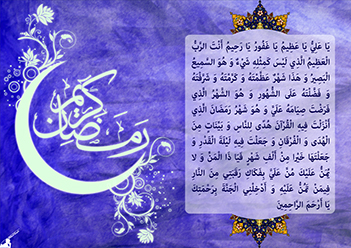 يَا عَلِيُّ يَا عَظِيمُ يَا غَفُورُ يَا رَحِيمُ أَنْتَ الرَّبُّ
الْعَظِيمُ الَّذِي لَيْسَ كَمِثْلِهِ شَيْءٌ وَ هُوَ السَّمِيعُ
الْبَصِيرُ وَ هَذَا شَهْرٌ عَظَّمْتَهُ وَ كَرَّمْتَهُ وَ شَرَّفْتَهُ
وَ فَضَّلْتَهُ عَلَى الشُّهُورِ وَ هُوَ الشَّهْرُ الَّذِي
فَرَضْتَ صِيَامَهُ عَلَيَّ وَ هُوَ شَهْرُ رَمَضَانَ الَّذِي
أَنْزَلْتَ فِيهِ الْقُرْآنَ هُدًى لِلنَّاسِ وَ بَيِّنَاتٍ مِنَ
الْهُدَى وَ الْفُرْقَانِ وَ جَعَلْتَ فِيهِ لَيْلَةَ الْقَدْرِ وَ
جَعَلْتَهَا خَيْرًا مِنْ أَلْفِ شَهْرٍ فَيَا ذَا الْمَنِّ وَ لا
يُمَنُّ عَلَيْكَ مُنَّ عَلَيَّ بِفَكَاكِ رَقَبَتِي مِنَ النَّارِ
فِيمَنْ تَمُنُّ عَلَيْهِ وَ أَدْخِلْنِي الْجَنَّةَ بِرَحْمَتِكَ
يَا أَرْحَمَ الرَّاحِمِينَ
رمضان كريم